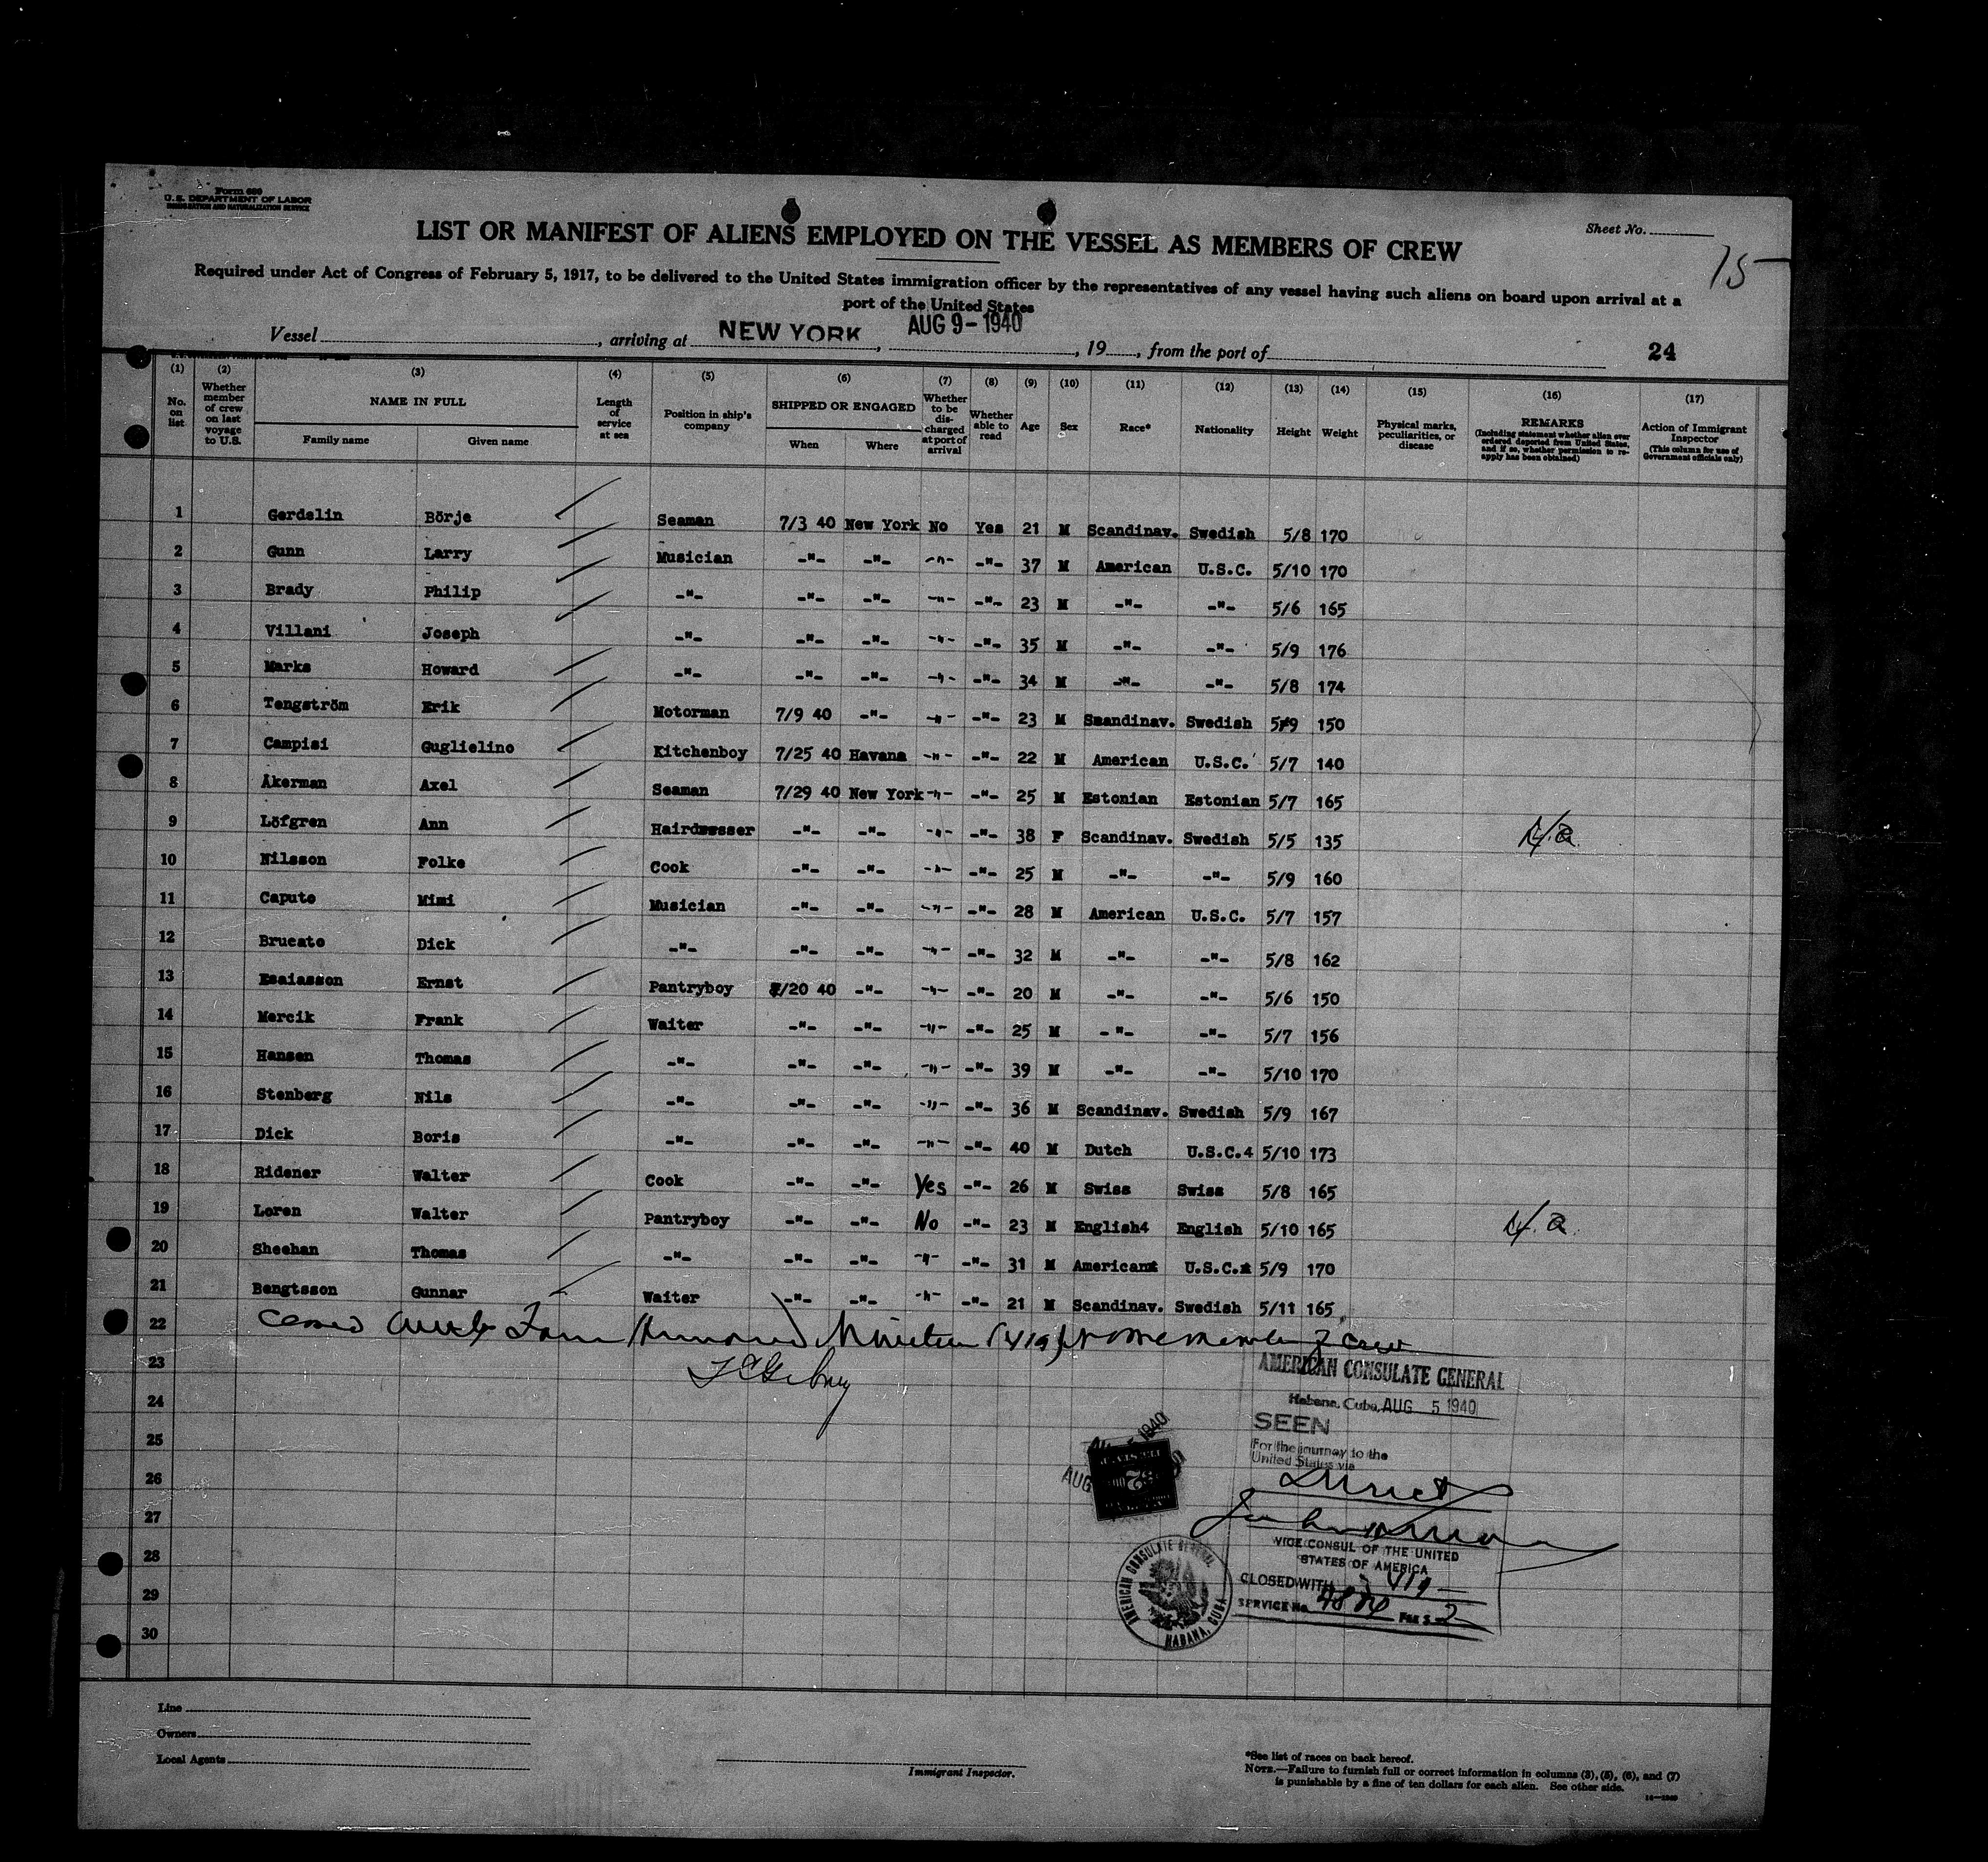 Form 680
U.S. DEPARTMENT OF LABOR
IMMIGRATION AND NATURALIZATION SERVICE
Sheet No.
15
LIST OR MANIFEST OF ALIENS EMPLOYED ON THE VESSEL AS MEMBERS OF CREW
Required under Act of Congress of February 5, 1917, to be delivered to the United States immigration officer by the representatives of any vessel having such aliens on board upon arrival at a
port of the United States
Vessel , arriving at NEW YORK , AUG 9-1940 , 19 , from the port of 24
(1) (2) (3) (4) (5) (6) (7) (8) (9) (10) (11) (12) (13) (14) (15) (16) (17)
No. on list Whether member of crew on last voyage to U.S. NAME IN FULL Family name Given name Length of service at sea Position in ship's company SHIPPED OR ENGAGED When Where Whether to be discharged at port of arrival Whether able to read Age Sex Race* Nationality Height Weight Physical marks, peculiarities, or disease REMARKS (Including statement whether alien ever ordered deported from United States, and if so, whether permission to reapply has been obtained) Action of Immigrant Inspector (This column for use of Government officials only)
1 Gerdelin Börje Seaman 7/3 40 New York No Yes 21 M Scandinav. Swedish 5/8 170
2 Gunn Larry Musician -"- -"- -"- -"- 37 M American U.S.C. 5/10 170
3 Brady Philip -"- -"- -"- -"- -"- 23 M -"- -"- 5/6 165
4 Villani Joseph -"- -"- -"- -"- -"- 35 M -"- -"- 5/9 176
5 Marks Howard -"- -"- -"- -"- -"- 34 M -"- -"- 5/8 174
6 Tengström Erik Motorman 7/9 40 -"- -"- -"- 23 M Scandinav. Swedish 5/9 150
7 Campisi Guglielino Kitchenboy 7/25 40 Havana -"- -"- 22 M American U.S.C. 5/7 140
8 Åkerman Axel Seaman 7/29 40 New York -"- -"- 25 M Estonian Estonian 5/7 165
9 Löfgren Ann -"- -"- -"- -"- 38 F Scandinav. Swedish 5/5 135
10 Nilsson Folke Cook -"- -"- -"- -"- 25 M -"- -"- 5/9 160
11 Capute Mimi Musician -"- -"- -"- -"- 28 M American U.S.C. 5/7 157
12 Brucato Dick -"- -"- -"- -"- -"- 32 M -"- -"- 5/8 162
13 Esaiasson Ernst Pantryboy /20 40 -"- -"- -"- 20 M -"- -"- 5/6 150
14 Mercik Frank Waiter -"- -"- -"- -"- 25 M -"- -"- 5/7 156
15 Hansen Thomas -"- -"- -"- -"- -"- 39 M -"- -"- 5/10 170
16 Stenberg Nils -"- -"- -"- -"- -"- 36 M Scandinav. Swedish 5/9 167
17 Dick Boris -"- -"- -"- -"- -"- 40 M Dutch U.S.C.4 5/10 173
18 Ridener Walter Cook -"- -"- Yes -"- 26 M Swiss Swiss 5/8 165
19 Loren Walter Pantryboy -"- -"- No -"- 23 M English4 English 5/10 165
20 Sheehan Thomas -"- -"- -"- -"- -"- 31 M American U.S.C. 5/9 170
21 Bengtsson Gunnar Waiter -"- -"- -"- -"- 21 M Scandinav. Swedish 5/11 165
22 Four Hundred Nineteen (419) member of crew
23
24
25
26
27
28
29
30
AMERICAN CONSULATE GENERAL
Habana, Cuba, AUG 5 1940
SEEN
For the journey to the
United States via
Direct
VICE CONSUL OF THE UNITED
STATES OF AMERICA
CLOSED WITH 419
SERVICE No. FEE $ 2
AUG 1940
AUG
2
AMERICAN CONSULATE GENERAL HABANA, CUBA
Line
Owners
Local Agents
Immigrant Inspector.
*See list of races on back hereof.
NOTE.—Failure to furnish full or correct information in columns (3), (5), (6), and (7)
is punishable by a fine of ten dollars for each alien. See other side.